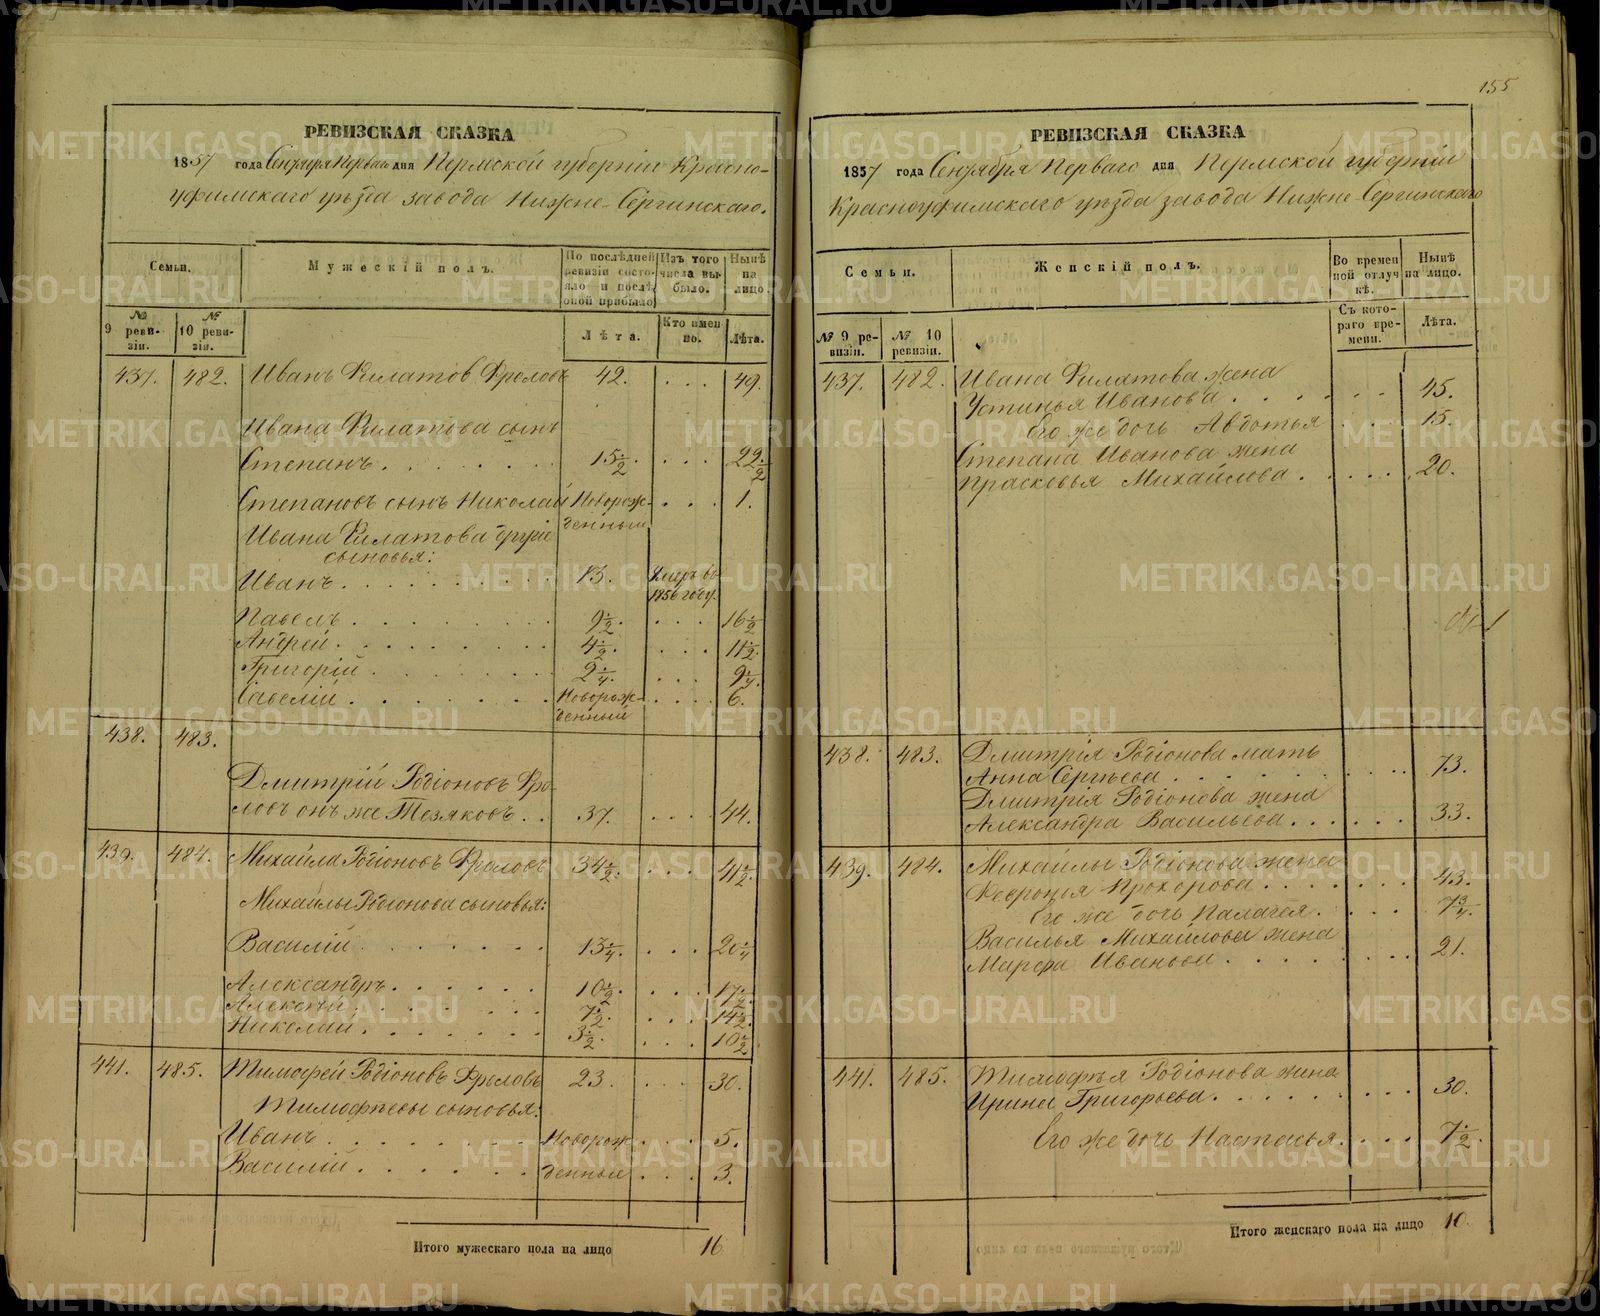 155
РЕВИЗСКАЯ СКАЗКА
1857 года Сентября Перваго дня Пермской губерніи Красно-
уфимскаго уѣзда завода Нижне-Сергинскаго.
Семьи.
Мужескій полъ.
По послѣдней ревизіи состояло и послѣ оной прибыло
Изъ того числа выбыло.
Нынѣ на лицо.
№ 9 ревизіи.
№ 10 ревизіи.
Лѣта.
Кто именно.
Лѣта.
437. 482. Иванъ Филатов Фроловъ 42. . . . 49.
Ивана Филатова сынъ
Степанъ . . . . . . . 15 1/2. . . . 22 1/2
Степановъ сынъ Николай Новорож- . . . 1.
денный
Ивана Филатова другіе
сыновья:
Иванъ . . . . . . . . . 13. Умеръ въ
1856 году.
Павелъ . . . . . . . . 9 1/2. . . . 16 1/2
Андрей . . . . . . . . 4 1/2. . . . 11 1/2.
Григорій . . . . . . . 2 1/4. . . . 9 1/4.
Савелій . . . . . . . Новорож- . . . . 6.
денный
438. 483.
Дмитрій Родіоновъ Фро-
ловъ онъ же Тезяковъ . . 37. . . . . 44.
439. 484. Михайла Родіоновъ Фроловъ 34 1/2. . . . 41 1/2.
Михайлы Родіонова сыновья:
Василій . . . . . . . 13 1/4. . . . 20 1/4
Александръ . . . . . . 10 1/2. . . . 17 1/2.
Алексѣй . . . . . . . 7 1/2. . . . 14 1/2.
Николай . . . . . . . 3 1/2. . . . 10 1/2
441. 485. Тимофей Родіоновъ Фроловъ 23. . . . 30.
Тимофѣевы сыновья:
Иванъ . . . . . . . . Новорож . . . . 5.
Василій . . . . . . . денные . . . 3.
Итого мужескаго пола на лицо 16
РЕВИЗСКАЯ СКАЗКА
1857 года Сентября Перваго дня Пермской губерніи
Красноуфимскаго уѣзда завода Нижне-Сергинскаго
Семьи.
Женскій полъ.
Во временной отлучкѣ.
Нынѣ на лицо.
№ 9 ревизіи.
№ 10 ревизіи.
Съ котораго времени.
Лѣта.
437. 482. Ивана Филатова жена
Устинья Иванова . . . . . . 45.
Его же дочь Авдотья . . . 15.
Степана Иванова жена
Прасковья Михайлова . . . . . 20.
438. 483. Дмитрія Родіонова мать
Анна Сергѣева . . . . . . . . 73.
Дмитрія Родіонова жена
Александра Васильева . . . . . . 33.
439. 484. Михайлы Родіонова жена
Февронія Прохорова . . . . . . . 43.
Его же дочь Палагея . . . . 7 3/4.
Василья Михайлова жена
Марфа Иванова . . . . . . . . 21.
441. 485. Тимофѣя Родіонова жена
Ирина Григорьева . . . . . . . . . 30.
Его же дочь Настасья . . . . 7 1/2.
Итого женскаго пола на лицо 10.
METRIKI.GASO-URAL.RU